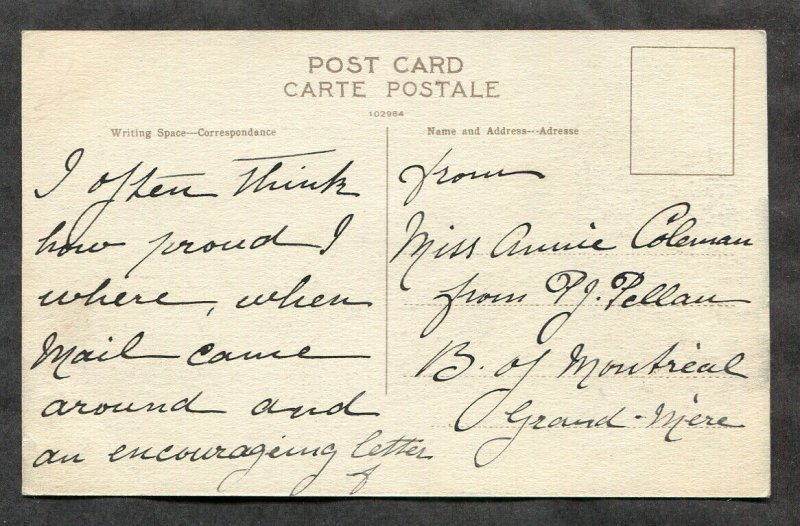 POST CARD
CARTE POSTALE
102964
Writing Space--Correspondance
Name and Address---Adresse
I often think
how proud I
where, when
Mail came
around and
an encourageing letter
from
Miss Annie Coleman
from P.J. Pellau
B. of Montréal
Grand-Mère